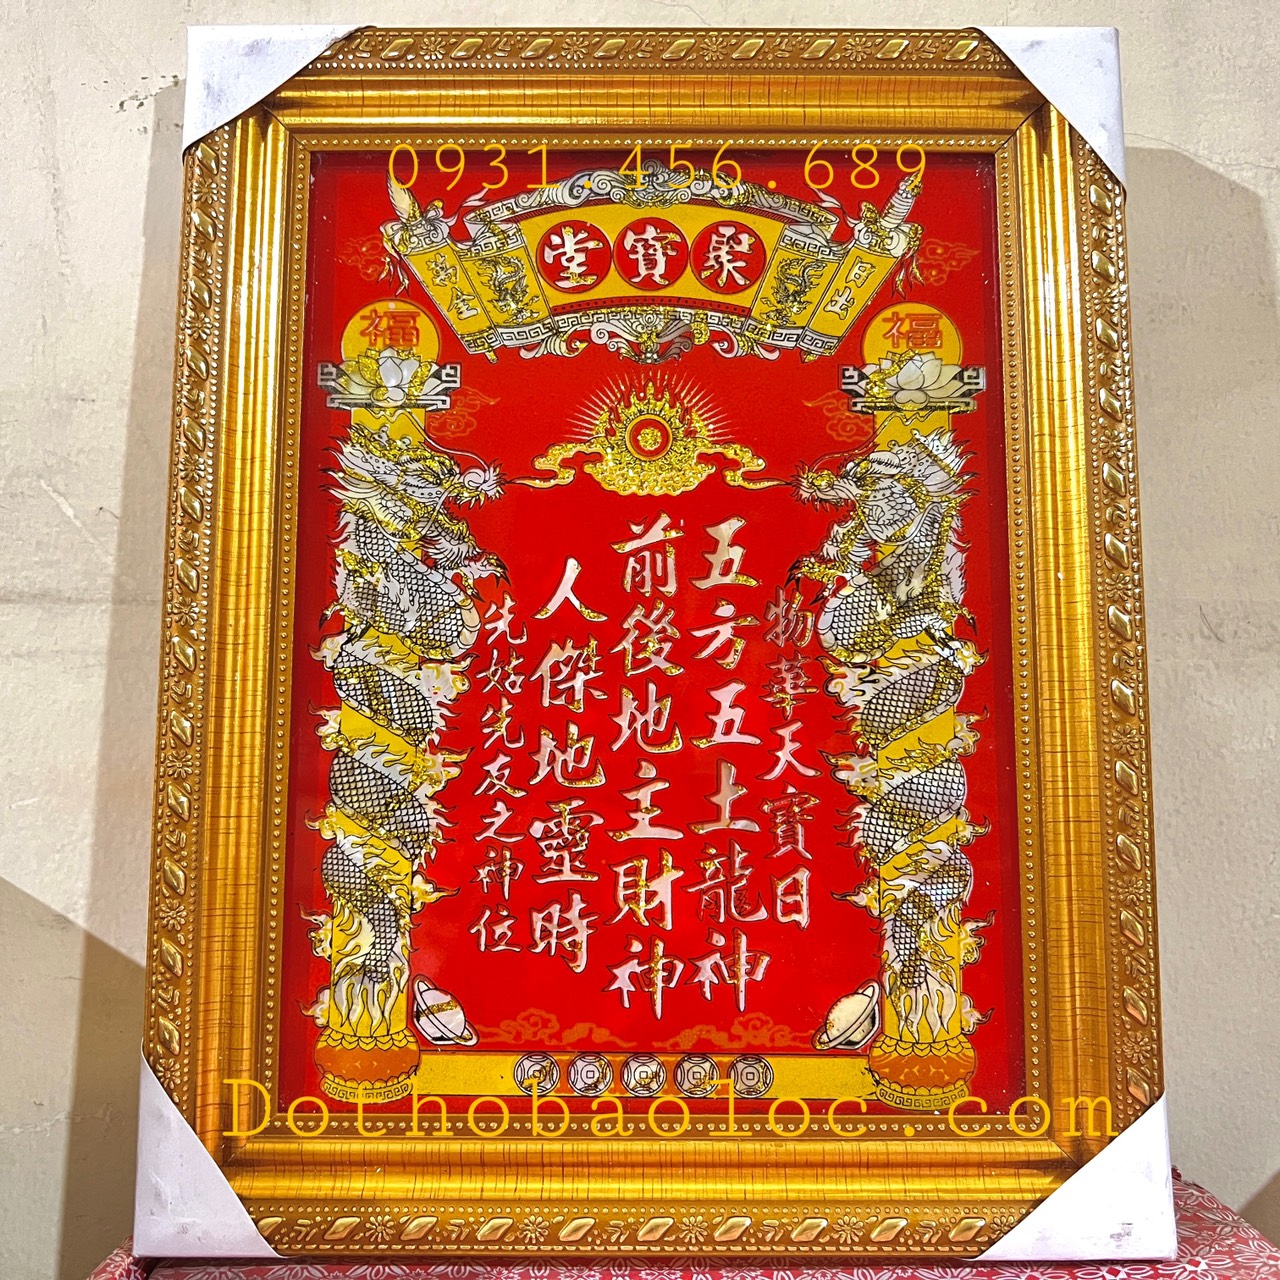 0931.456.689
聚寶堂
日出
萬金
福
福
物華天寶日
五方五土龍神
前後地主財神
人傑地靈時
先姑先友之神位
Dothobaoloc.com